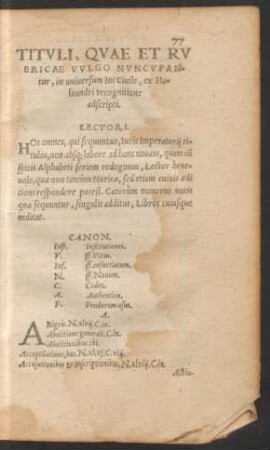 77
TITVLI, QVAE ET RV
BRICAE VVLGO NVNCVPAN-
tur, in universum Ius Ciuile, ex Ha-
loandri recognitione
adscripti.
LECTORI.
HOs omnes, qui sequuntur, Iuris Imperatorij ti-
tulos, non absq; labore ad hanc nouam, quam
Alphabeti seriem redegimus, Lector beneuo-
le, quæ non tantùm Noricæ, sed etiam cuiuis edi-
tioni respondere potest. Cæterùm numerus notis
quæ sequuntur, singulis additus, Libros cuiusque
indicat.
CANON.
Inst. Institutiones.
V. ff. Vetus.
Inf. ff. Infortiatum.
N. ff. Nouum.
C. Codex.
A. Authenticæ.
F. Feudorum usus.
A.
ABigeis. N. xlvij. C. ix.
Abolitione generali, C. ix.
Abolitionibus. ibi.
Acceptilatione, hac. N. xlvj. C. viij.
Accusationibus & inscriptionibus, N. xlviij. C. ix.